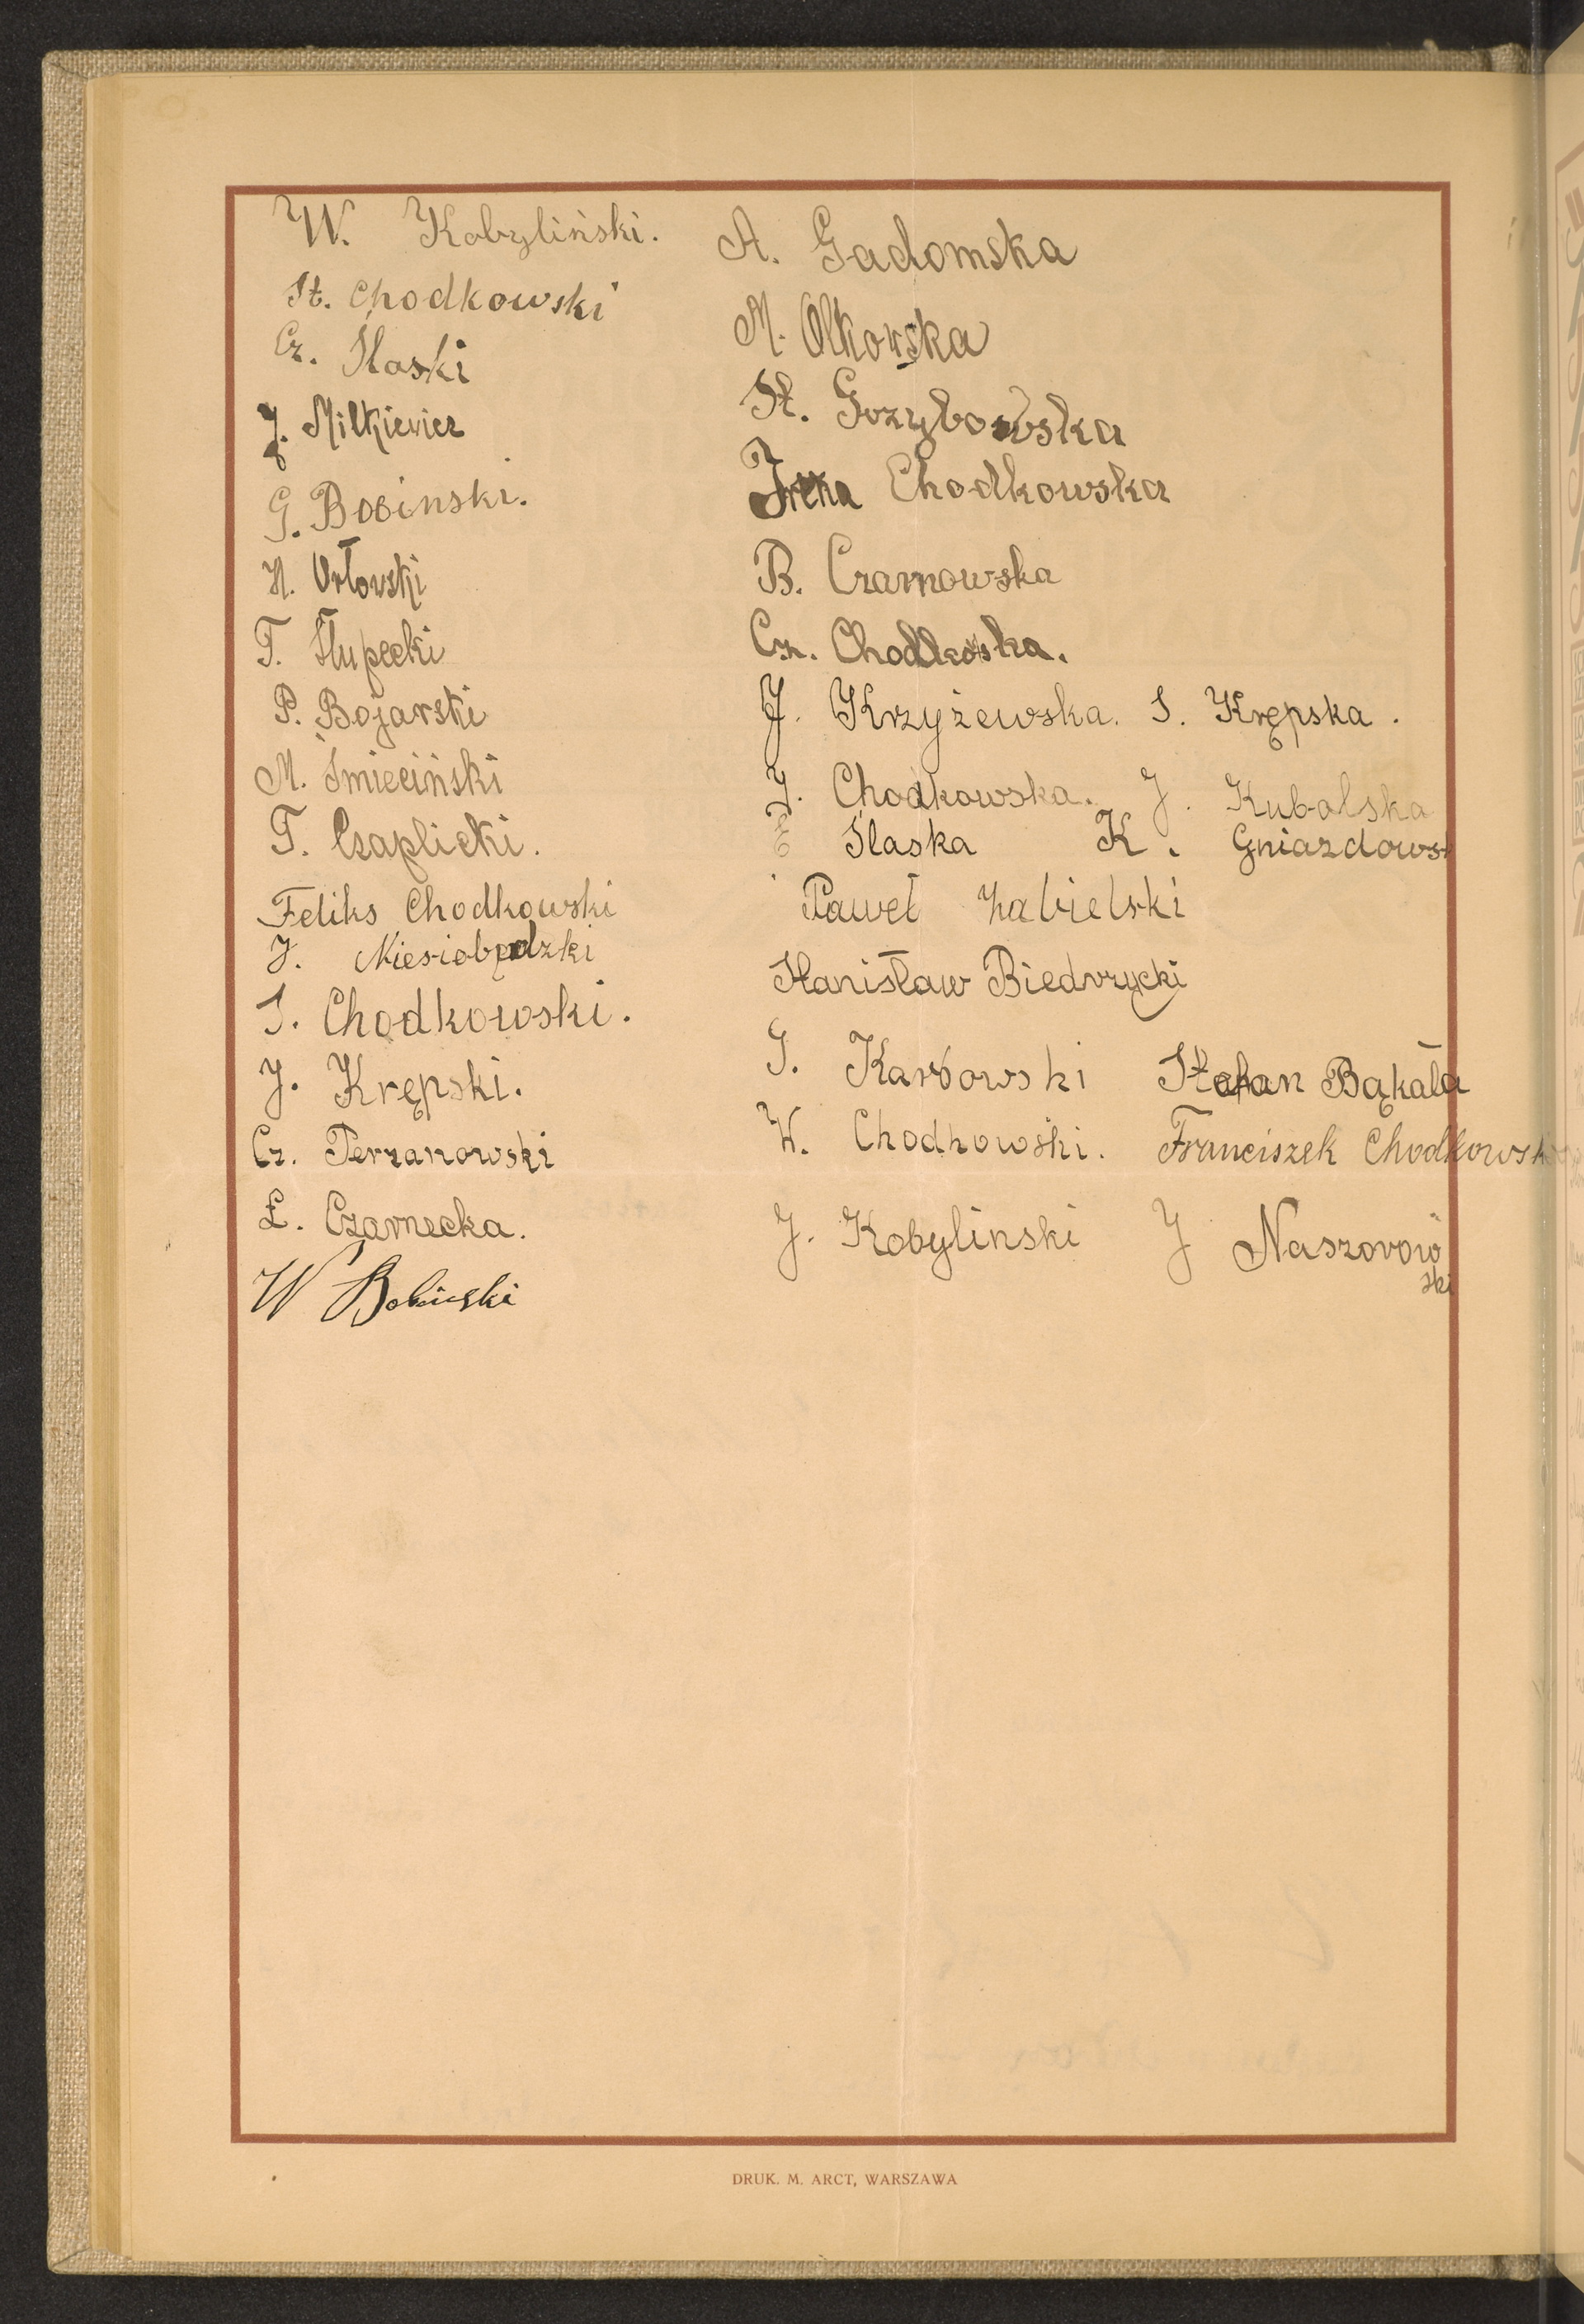 W. Kobyliński.
St. Chodkowski
Cz. Ślaski
J. Milkiewicz
G. Bobinski.
H. Orłowski
T. Słupecki
P. Bojarski
M. Śmieciński
T. Czaplicki.
Feliks Chodkowski
J. Niesiobędzki
S. Chodkowski.
J. Krępski.
Cz. Perzanowski
Ł. Czarnecka.
W Bobinski
A. Gadomska
M. Olkowska
St. Grzybowska
Irena Chodkowska
B. Czarnowska
Cz. Chodkoska.
J. Krzyżewska. S. Krępska.
J. Chodkowska. J. Kubalska
E Ślaska K. Gniazdowsk
Paweł Zabielski
Stanisław Biedrzycki
S. Karbowski Stefan Bąkała
W. Chodkowski. Franciszek Chodkowski
J. Kobylinski J Naszorow
ski
DRUK. M. ARCT, WARSZAWA